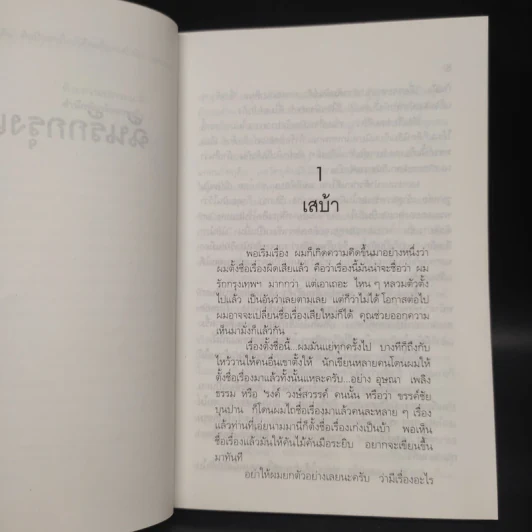 1
เสบ้า
พอเริ่มเรื่อง ผมก็เกิดความคิดขึ้นมาอย่างหนึ่งว่า
ผมตั้งชื่อเรื่องผิดเสียแล้ว คือว่าเรื่องนี้มันน่าจะชื่อว่า ผม
รักกรุงเทพฯ มากกว่า แต่เอาเถอะ ไหน ๆ หลวมตัวตั้ง
ไปแล้ว เป็นอันว่าเลยตามเลย แต่ก็ว่าไม่ได้ โอกาสต่อไป
ผมอาจจะเปลี่ยนชื่อเรื่องเสียใหม่ก็ได้ คุณช่วยออกความ
เห็นมามั่งก็แล้วกัน
เรื่องตั้งชื่อนี้...ผมมันแย่ทุกครั้งไป บางทีก็ถึงกับ
ไหว้วานให้คนอื่นเขาตั้งให้ นักเขียนหลายคนโดนผมให้
ตั้งชื่อเรื่องมาแล้วทั้งนั้นแหละครับ...อย่าง อุษณา เพลิง
ธรรม หรือ 'รงค์ วงษ์สวรรค์ คนนั้น หรือว่า ขรรค์ชัย
บุนปาน ก็โดนผมไถชื่อเรื่องมาแล้วคนละหลาย ๆ เรื่อง
แล้วท่านที่เอ่ยนามมานี่ก็ตั้งชื่อเรื่องเก่งเป็นบ้า พอเห็น
ชื่อเรื่องแล้วมันให้คันไม้คันมือระยิบ อยากจะเขียนขึ้น
มาทันที
อย่าให้ผมยกตัวอย่างเลยนะครับ ว่ามีเรื่องอะไร